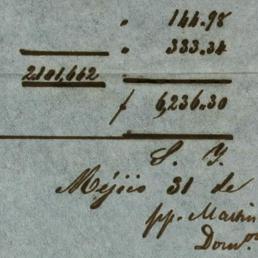 " 144.98
" 333.34
2101,662
$ 6,236.30
S. Y.
Méjico 31 de
pp. Martin
Dom.